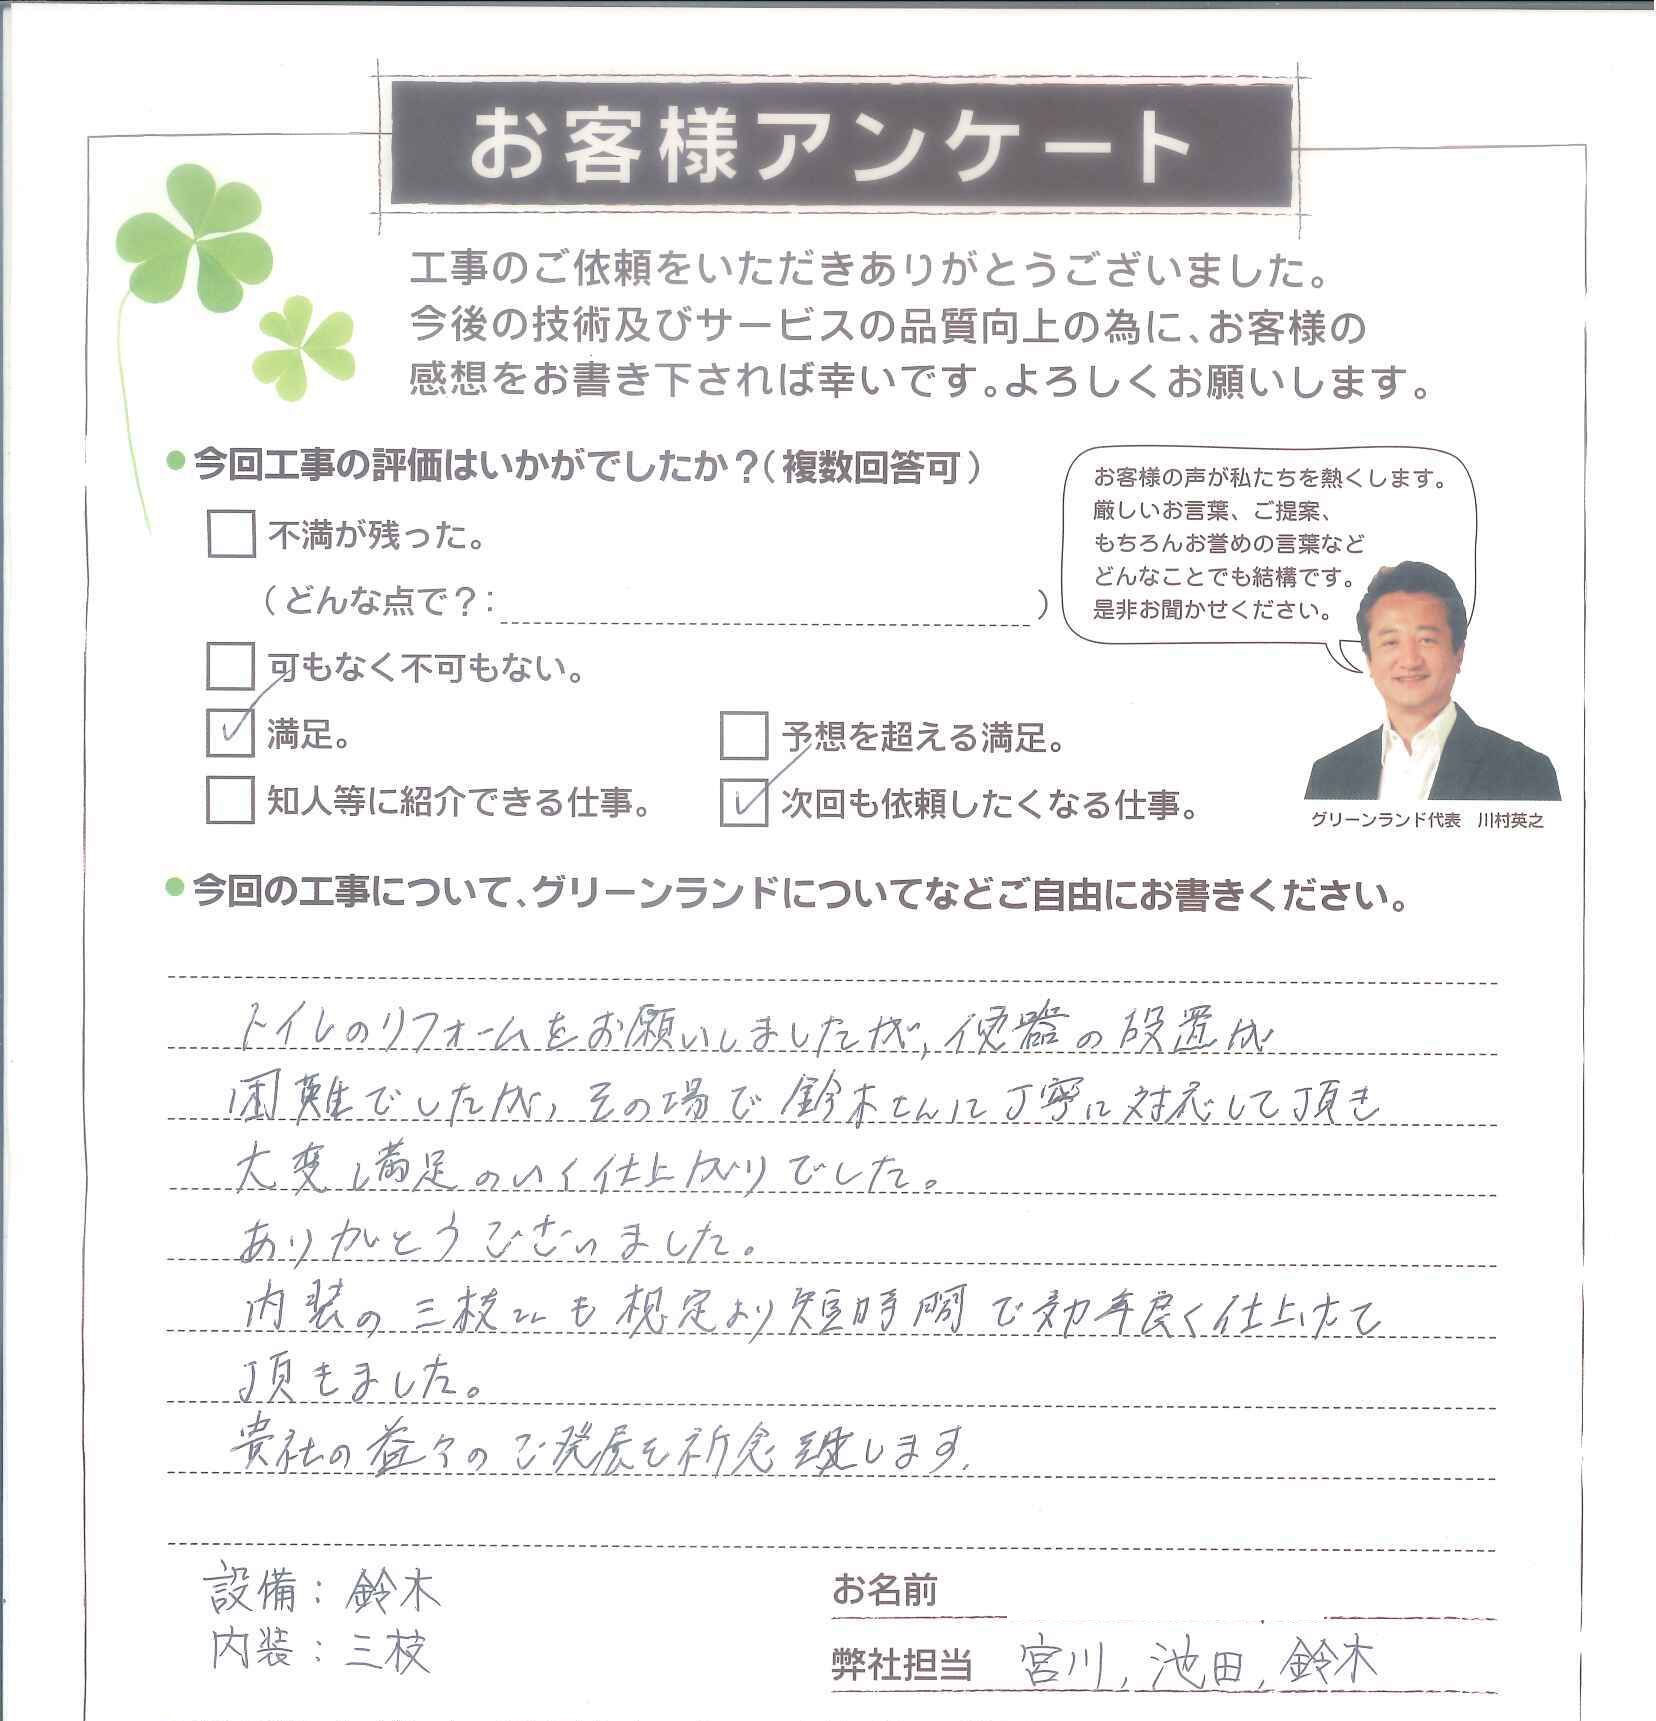 お客様アンケート
工事のご依頼をいただきありがとうございました。
今後の技術及びサービスの品質向上の為に、お客様の
感想をお書き下されば幸いです。よろしくお願いします。
今回工事の評価はいかがでしたか？（複数回答可）
お客様の声が私たちを熱くします。
厳しいお言葉、ご提案、
もちろんお誉めの言葉など
どんなことでも結構です。
是非お聞かせください。
グリーンランド代表　川村英之
不満が残った。
（どんな点で？：　　　）
可もなく不可もない。
満足。
予想を超える満足。
知人等に紹介できる仕事。
次回も依頼したくなる仕事。
今回の工事について、グリーンランドについてなどご自由にお書きください。
トイレのリフォームをお願いしましたが、便器の設置が
困難でしたが、その場で鈴木さんに丁寧に対応して頂き
大変満足のいく仕上がりでした。
ありがとうございました。
内装の三枝さんも想定より短時間で効率良く仕上げて
頂きました。
貴社の益々のご発展を祈念致します.
設備：鈴木
内装：三枝
お名前
弊社担当　宮川, 池田, 鈴木